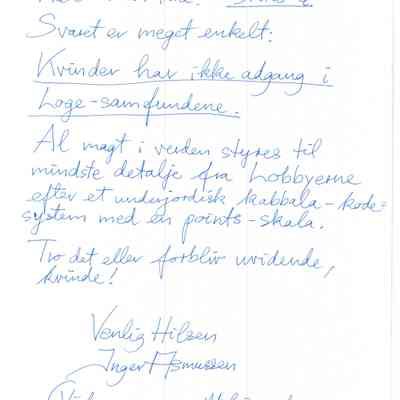 Svaret er meget enkelt:
Kvinder har ikke adgang i
Loge-samfundene.
Al magt i verden styres til
mindste detalje fra Lobbyerne
efter et underjordisk kabbala-kode-
system med en points-skala.
Tro det eller forbliv uvidende,
kvinde!
Venlig Hilsen
Inger Asmussen